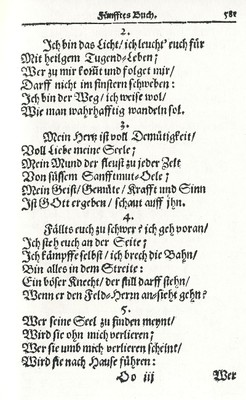 Fünfftes Buch. 581
2.
Ich bin das Licht/ ich leucht' euch für
Mit heilgem Tugend-Leben;
Wer zu mir kom̃t und folget mir/
Darff nicht im finstern schweben:
Ich bin der Weg/ ich weise wol/
Wie man wahrhafftig wandeln sol.
3.
Mein Hertz ist voll Demütigkeit/
Voll Liebe meine Seele;
Mein Mund der fleust zu jeder Zeit
Von süssem Sanfftmut-Oele;
Mein Geist/ Gemüte/ Krafft und Sinn
Ist GOtt ergeben/ schaut auff jhn.
4.
Fällts euch zu schwer? ich geh voran/
Ich steh euch an der Seite;
Ich kämpffe selbst/ ich brech die Bahn/
Bin alles in dem Streite:
Ein böser Knecht/ der still darff stehn/
Wenn er den Feld-Herrn an-sieht gehn?
5.
Wer seine Seel zu finden meynt/
Wird sie ohn mich verlieren;
Wer sie umb mich verlieren scheint/
Wird sie nach Hause führen:
Oo iij Wer